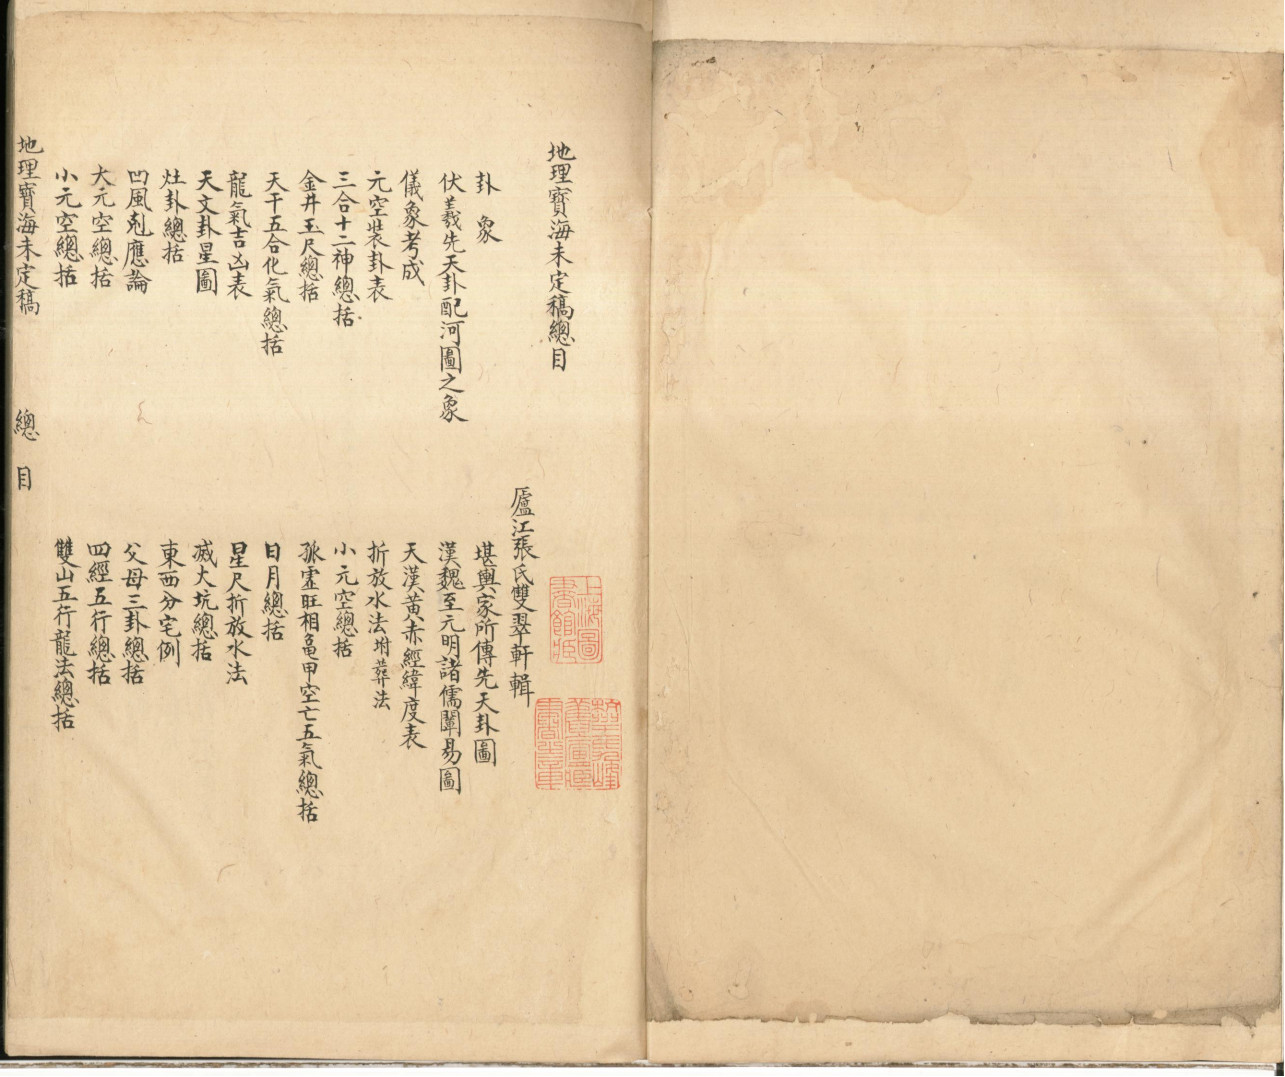 地理寶海未定稿總目
廬江張氏雙翠軒輯
卦象
堪輿家所傳先天卦圖
伏羲先天卦配河圖之象
漢魏至元明諸儒闡易圖
儀象考成
天漢黃赤經緯度表
元空裝卦表
折放水法附葬法
三合十二神總括
小元空總括
金井玉尺總括
孤虛旺相龜甲空亡五氣總括
天干五合化氣總括
日月總括
龍氣吉凶表
星尺折放水法
天文卦星圖
滅大坑總括
灶卦總括
東西分宅例
凹風剋應論
父母三卦總括
大元空總括
四經五行總括
小元空總括
雙山五行龍法總括
地理寶海未定稿 總目
上海圖書館藏